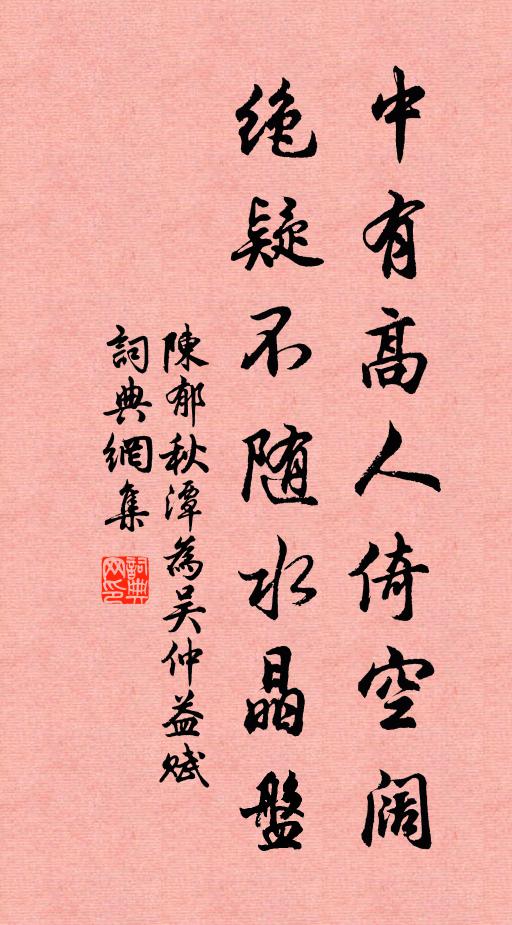 中有高人倚空阔
绝疑不随水晶盤
陳郁秋潭為吴仲益赋
詞典網集
詞典网印